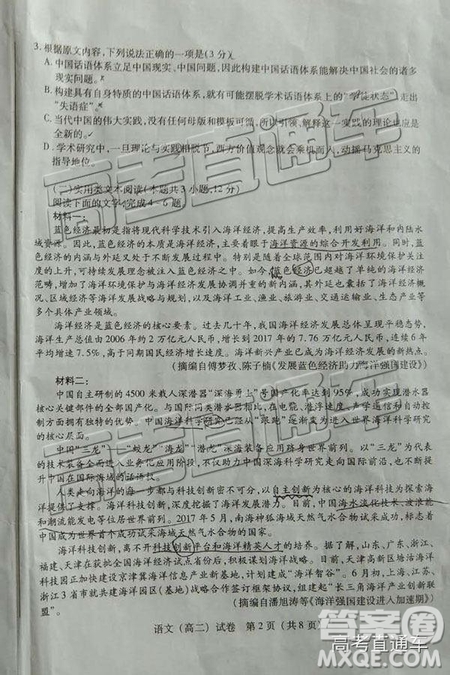 3. 根据原文内容,下列说法正确的一项是(3分)
A. 中国话语体系立足中国现实、中国问题,因此构建中国话语体系能解决中国社会的诸多
现实问题。
B. 构建具有自身特质的中国话语体系,就有可能摆脱学术话语体系上的“学徒状态”走出
“失语症”。
C. 当代中国的伟大实践,没有任何母版和模板可言,所以引领、解释这一实践的理论也应是
全新的。
D. 学术研究中,一旦理论与实践相脱节,西方价值观念就会乘机而入,动摇马克思主义的
指导地位。
(二)实用类文本阅读(本题共3小题,12分)
阅读下面的文字,完成4~6题。
材料一:
蓝色经济最初是指将现代科学技术引入海洋经济,提高生产效率,利用好海洋和内陆水
域资源。因此,蓝色经济的本质是海洋经济,主要着眼于海洋资源的综合开发利用。同时,蓝
色经济的内涵与外延又处于不断发展过程中。特别是随着全球范围内对海洋环境保护关注
度的上升,可持续发展理念被注入蓝色经济之中。如今,蓝色经济已超越了单纯的海洋经济
范畴,增加了海洋环境保护与海洋经济发展协调开变的新内涵,其外延也囊括了海洋经济概
况、区域经济等海洋发展战略与规划,以及海洋工业、渔业、旅游业、交通运输业、生态产业等
多个具体产业领域。
海洋经济是蓝色经济的核心要素。过去几十年,我国海洋经济发展总体呈现上升态势。
海洋生产总值由2006年的2万亿元人民币,增长到2017年的7.76万亿元人民币,连续6年
平均增速7.5%,高于同期国民经济增速。海洋新兴产业已成为我国海洋经济发展的新热点。
(摘编自傅梦孜、陈子楠《发展蓝色经济助力海洋强国建设》)
材料二:
中国自主研制的4500米载人深潜器“深海勇士”号国产化率达到95%,成功实现潜水器
核心关键部件的全部国产化。与历代国产潜器相比,在电池、潜浮速度、声学通信和自动控制
方面拥有独特的优势。中国海洋科学研究已经从“跟跑”逐渐变为进入世界海洋科学研究
的核心层面。
中国“三龙”——“蛟龙”“海龙”“潜龙”深海装备应用跻身世界前列。以“三龙”为代表
的技术装备全面进入业务化运行阶段,有力助推了中国深海科学研究走向国际前沿,也不断提
升中国在国际海域的话语权。
人类走向海洋的每一步都与科技创新密不可分,以自主创新为核心的海洋科技为探查海
洋提供了支撑。海洋科技创新,深度挖掘了海洋发展潜力。目前,中国海水淡化技术、波浪能
和潮流能发电等位居世界前列。2017年5月,南海神狐海域天然气水合物试采成功,标志着
中国成为世界首个成功试采海域天然气水合物的国家。
海洋科技创新,离不开科技创新平台和海洋精英人才的培养。据了解,山东、广东、浙江、
福建、天津在获批全国海洋经济试点省份后,积极谋划海洋战略。目前,天津高新区塘沽海洋
科技园正加快建设京津冀海洋信息产业新基地,计划建成“海洋智谷”。6月初,上海、江苏、
浙江3省市就共建海洋园区(基地)战略合作等签订合作文件,组建“长三角海洋产业创新联
盟”。
(摘编自潘旭涛等《海洋强国建设进入加速期》)
语文(高二)试卷 第2页(共8页)
高考直通车
答案圈
MXQE.COM
高考直通车